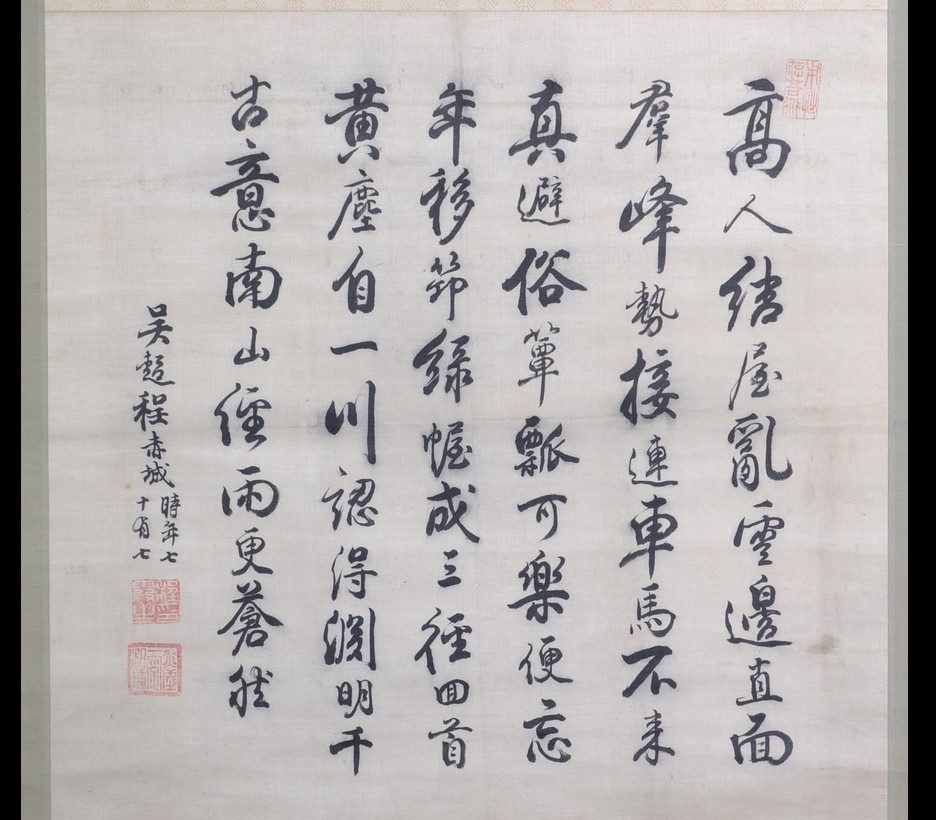 高人結屋亂雲邊直面
羣峰勢接連車馬不来
真避俗簞瓢可樂便忘
年移笻綠幄成三徑回首
黄塵自一川認得淵明千
古意南山經雨更蒼然
吳趨程赤城時年七
十有七